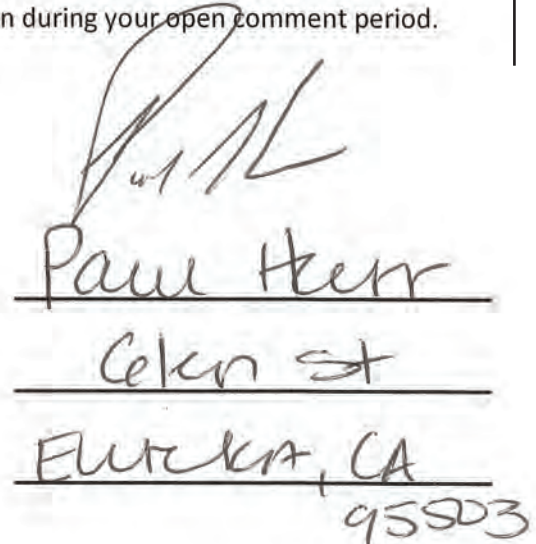 n during your open comment period.
Paul Herr
St
Eureka, CA
95503